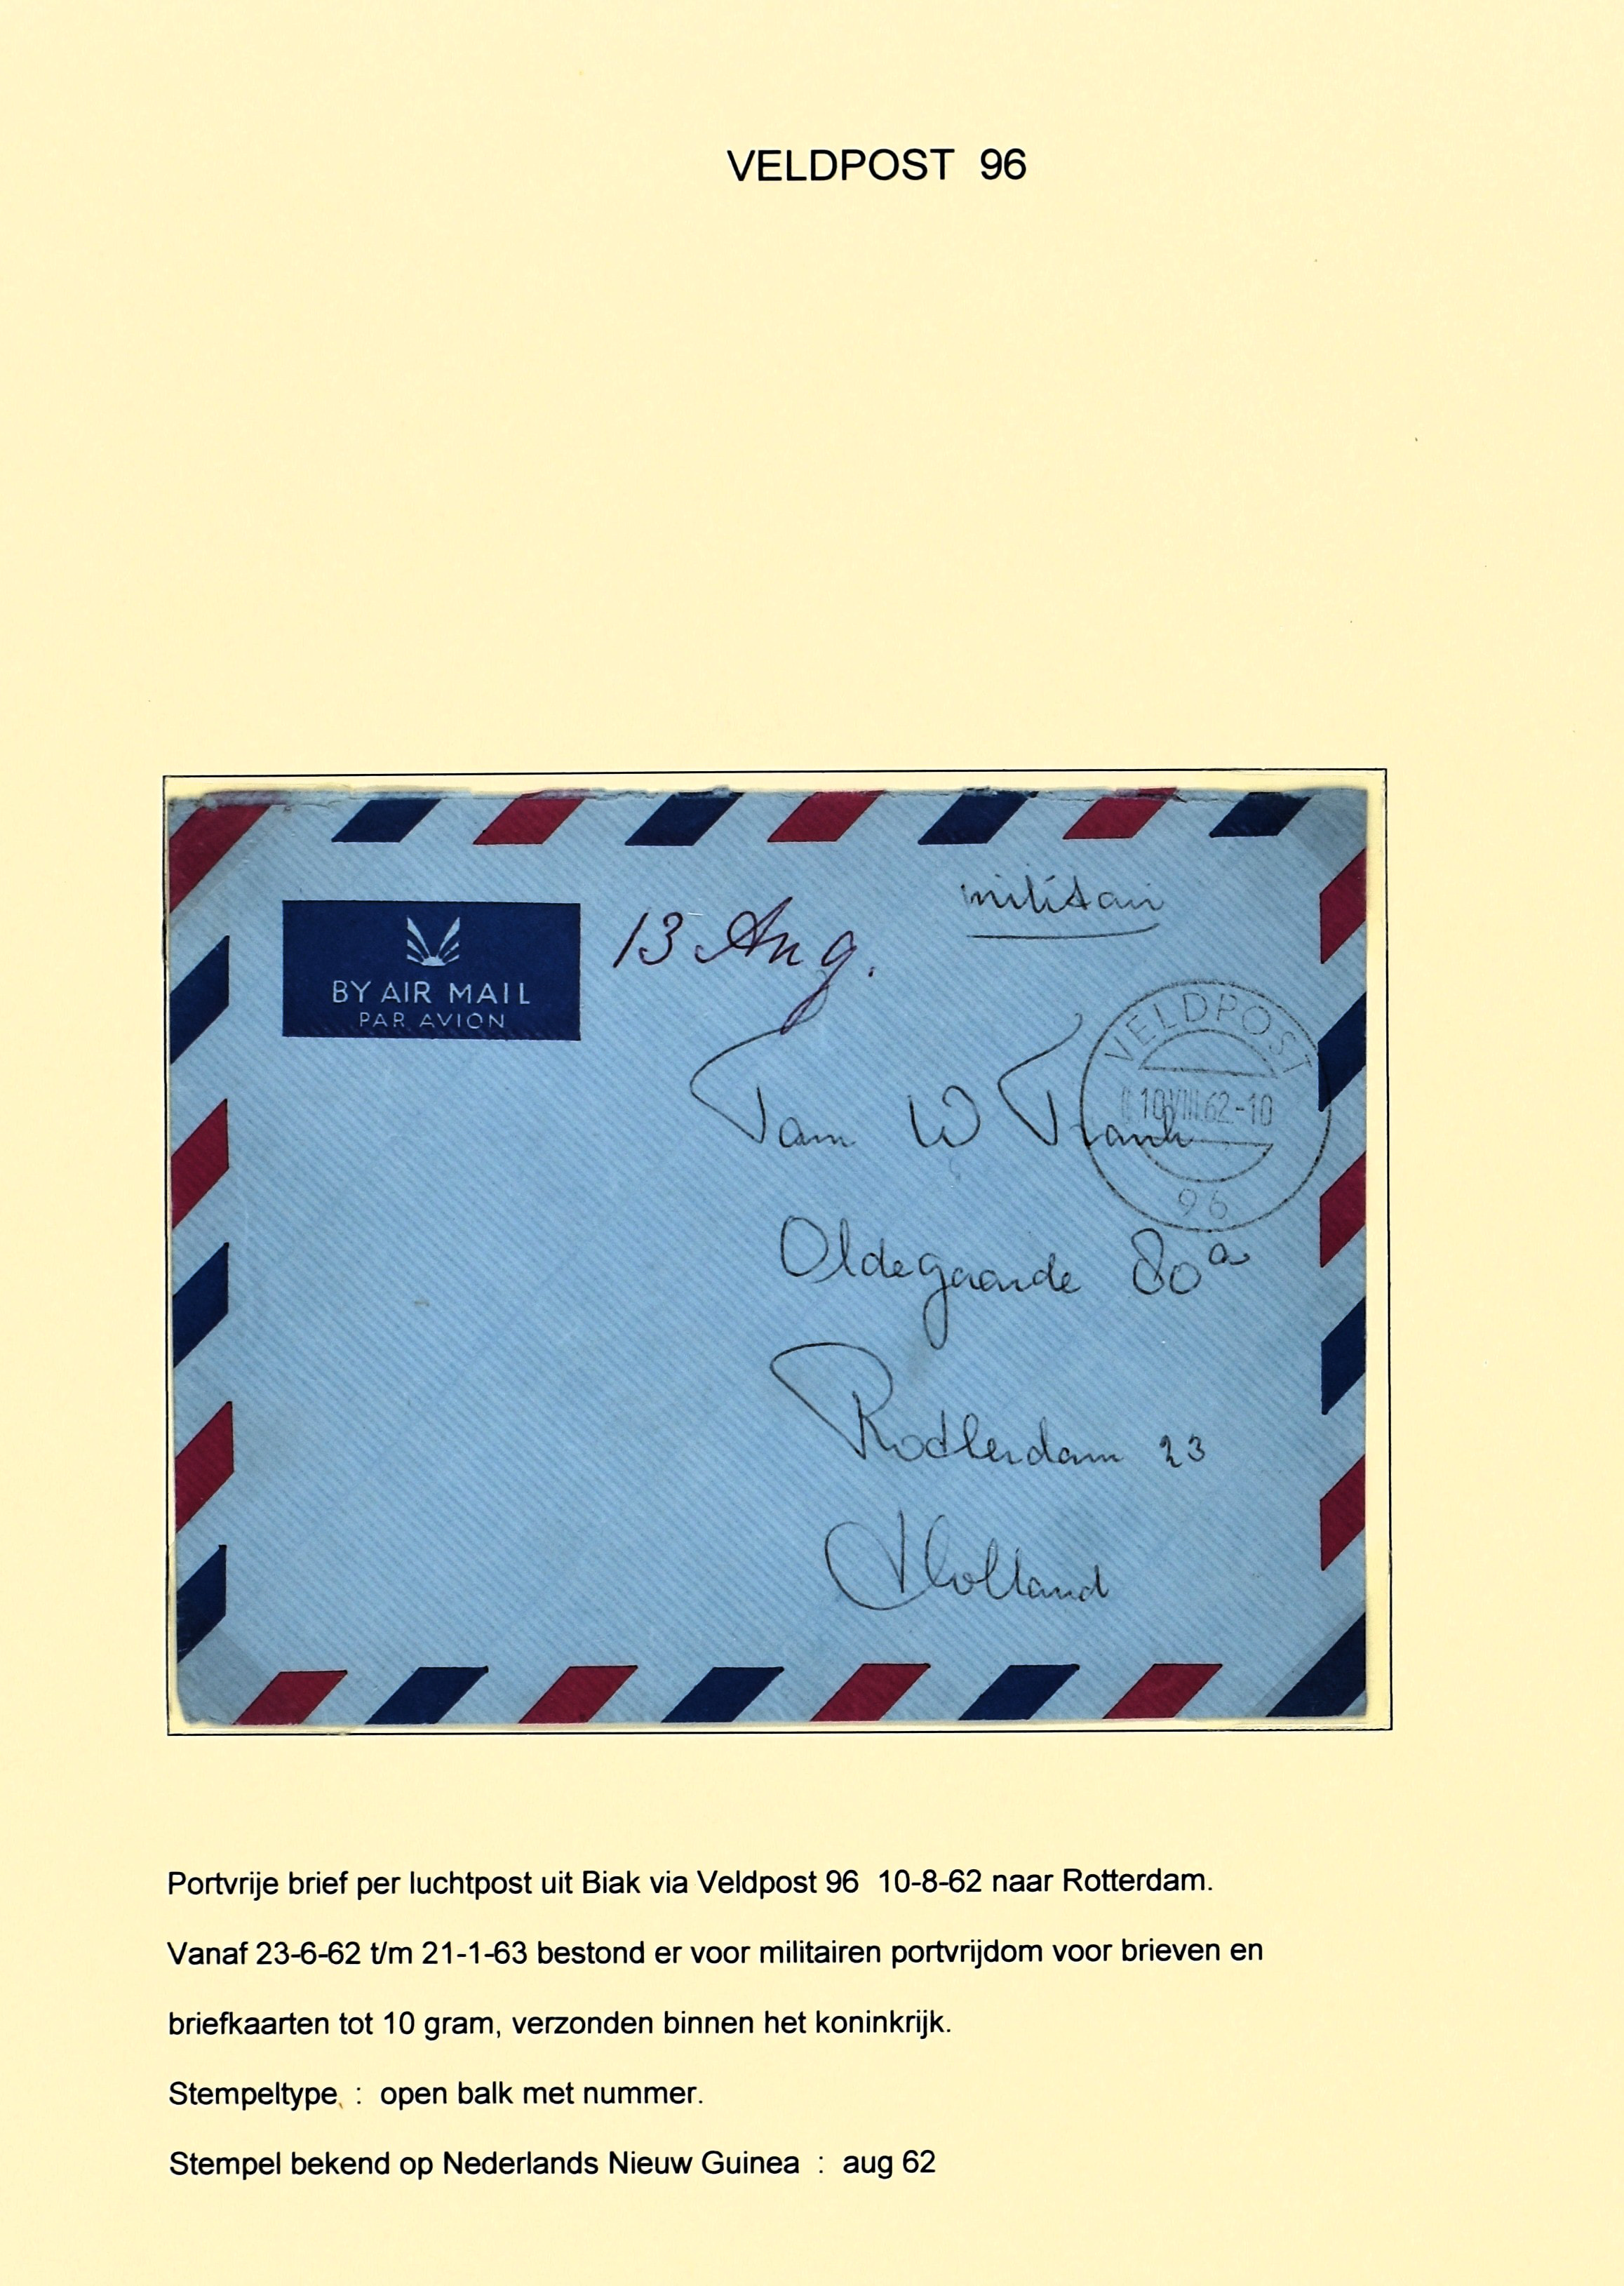 VELDPOST 96
militair
13 Aug.
BY AIR MAIL
PAR AVION
VELDPOST
10 VIII 62-10
96
Fam W Frank
Oldegaarde 80a
Rotterdam 23
Holland
Portvrije brief per luchtpost uit Biak via Veldpost 96 10-8-62 naar Rotterdam.
Vanaf 23-6-62 t/m 21-1-63 bestond er voor militairen portvrijdom voor brieven en
briefkaarten tot 10 gram, verzonden binnen het koninkrijk.
Stempeltype : open balk met nummer.
Stempel bekend op Nederlands Nieuw Guinea : aug 62